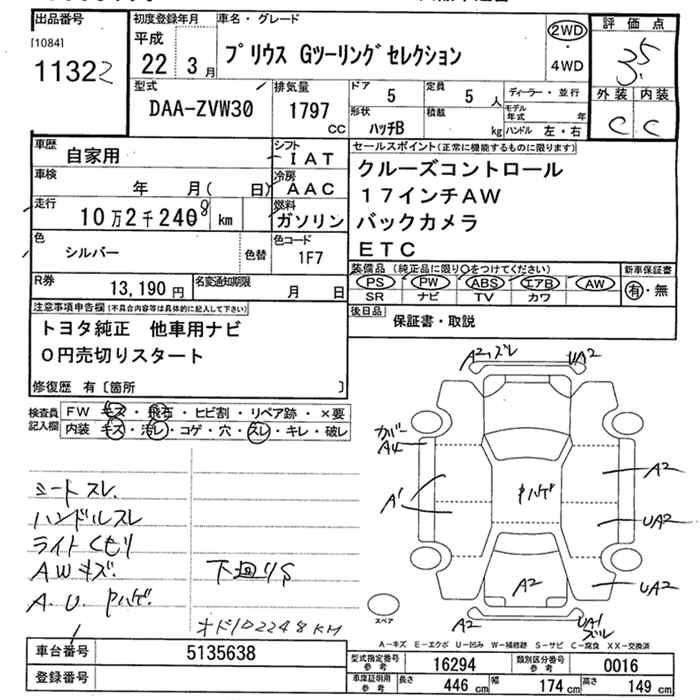 出品番号
[1084]
11322
初度登録年月
平成
22年 3月
車名・グレード
プリウス Gツーリングセレクション
2WD
・
4WD
評価点
3.5
外装 内装
C C
型式
DAA-ZVW30
排気量
1797
CC
ドア 5
定員 5 人
ディーラー・並行
形状 ハッチB
積載 kg
モデル年式 年
ハンドル 左・右
車歴 自家用
シフト IAT
車検 年 月( 日)
冷房 AAC
走行 10万2千248 km
燃料 ガソリン
色 シルバー 色替
色コード 1F7
R券 13,190円
名変通知期限 月 日
セールスポイント(正常に機能するものに限ります)
クルーズコントロール
17インチAW
バックカメラ
ETC
装備品(純正品に限り○をつけてください)
PS PW ABS エアB AW
SR ナビ TV カワ
新車保証書
有・無
後日品 保証書・取説
注意事項申告欄(不具合内容等は具体的に記入して下さい)
トヨタ純正 他車用ナビ
0円売切りスタート
修復歴 有[箇所 ]
検査員記入欄
FW キズ・飛石・ヒビ割・リペア跡・×要
内装 キズ・汚レ・コゲ・穴・スレ・キレ・破レ
シートスレ.
ハンドルスレ
ライトくもり
AWキズ.
A.U.Pハゲ.
下廻りS
オド102248KM
A2,ズレ
UA2
カバ
A4
A1
Pハゲ
A2
UA2
A2
UA2
A2
UA1
ズレ
スペア
A-キズ E-エクボ U-凹み W-補修跡 S-サビ C-腐食 XX-交換済
車台番号 5135638
登録番号
型式指定番号参考 16294
類別区分番号参考 0016
車庫証明用参考
長さ 446 cm 幅 174 cm 高さ 149 cm